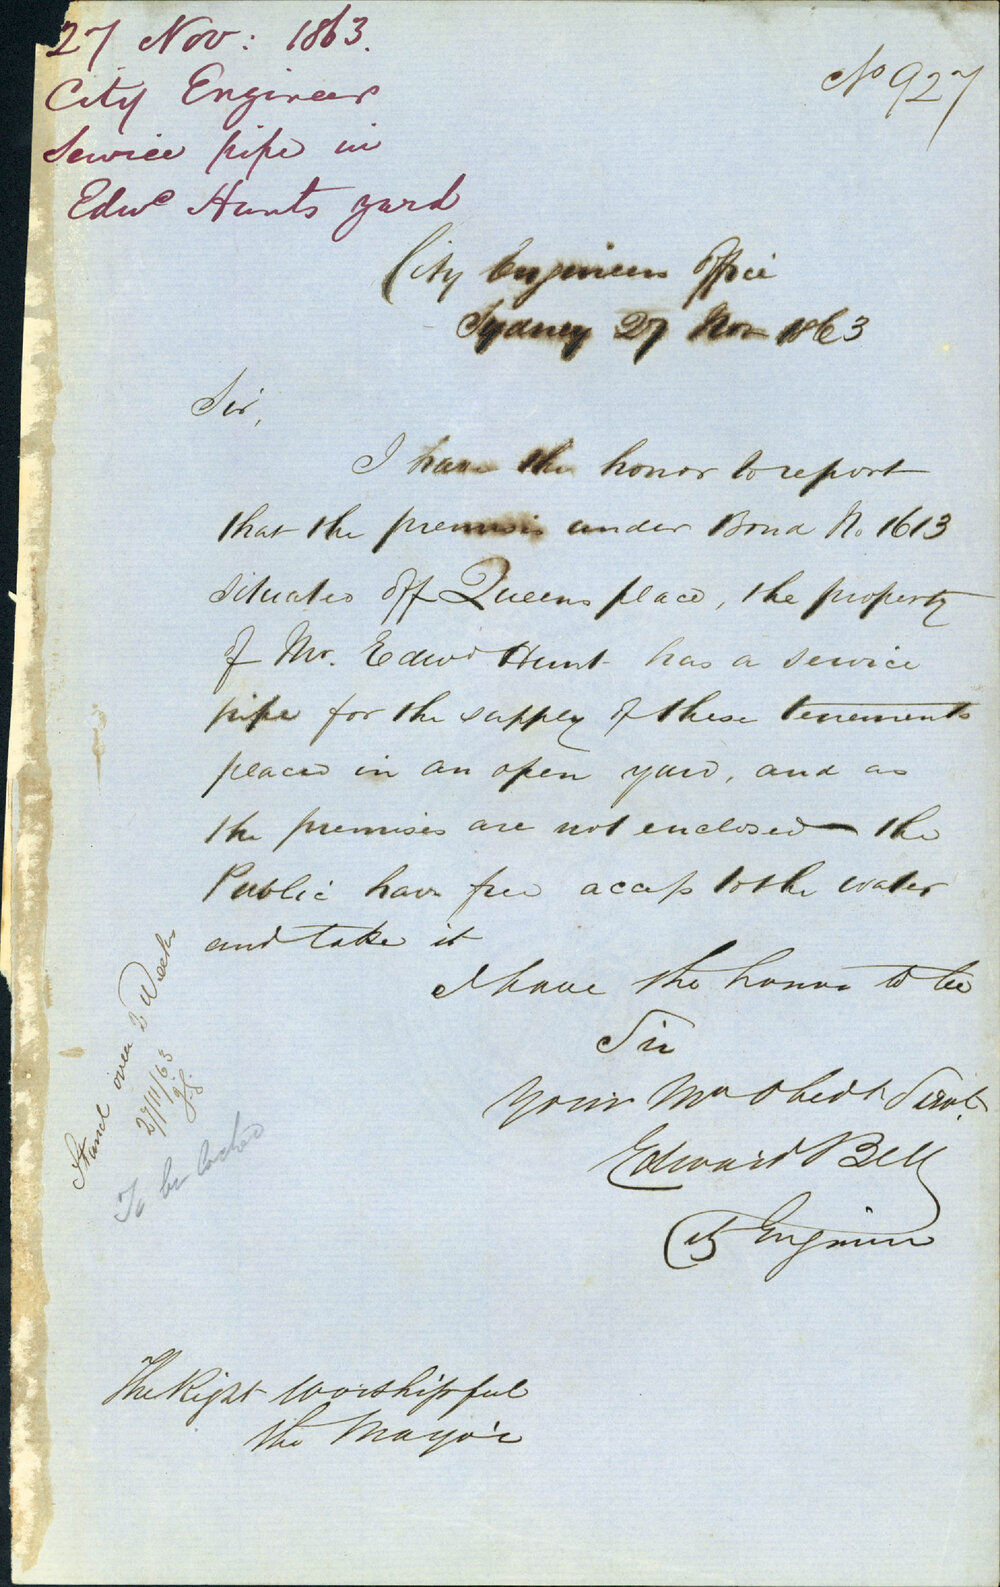 27 Nov: 1863.
City Engineer
Service pipe in
Edwd Hunts yard
No 927
City Engineers Office
Sydney 27 Nov 1863
Sir,
I have the honor to report
that the premises under Bond No. 1613
situated off Queens place, the property
of Mr. Edwd Hunt has a service
pipe for the supply of these tenements
placed in an open yard, and as
the premises are not enclosed the
Public have free access to the water
and take it
I have the honor to be
Sir
Your Mo Obedt Servt.
Edward Bell
City Engineer
Stand over 2 Weeks
27/11/63
To be locked
The Right Worshipful
the Mayor